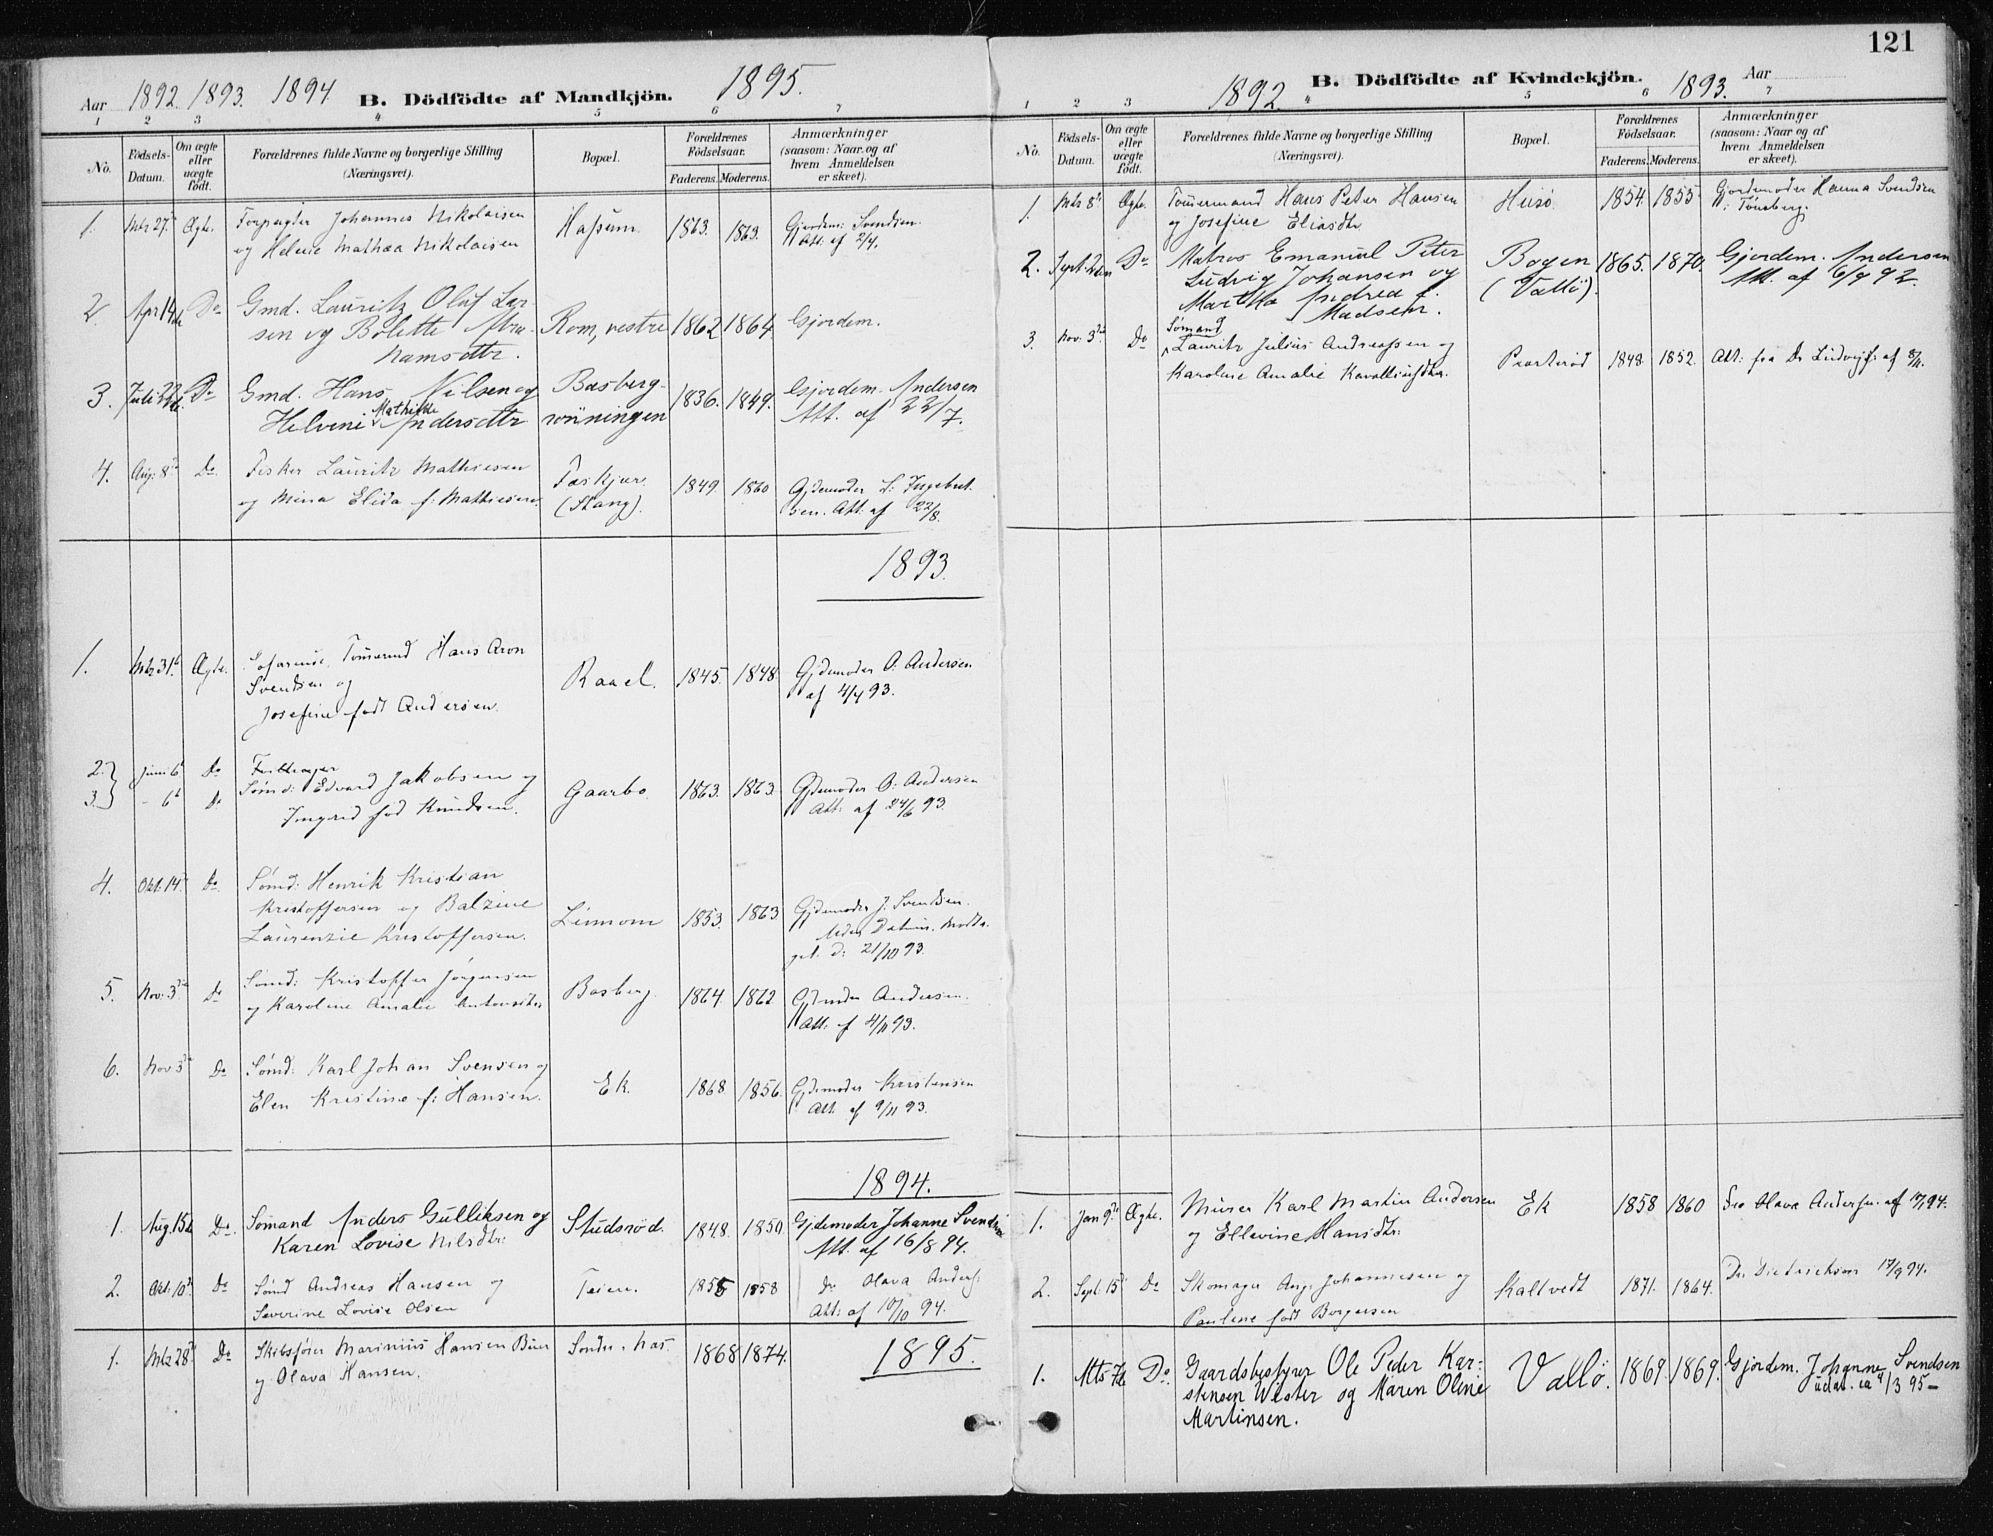 121
Aar 1892. 1893. 1894. B. Dödfödte af Mandkjön. 1895.
1 2 3 4 5 6 7
No.
Födsels-
Datum.
Om ægte
eller
uægte
födt.
Forældrenes fulde Navne og borgerlige Stilling
(Næringsvei).
Bopæl.
Forældrenes
Födselsaar.
Faderens. Moderens.
Anmærkninger
(saasom: Naar og af
hvem Anmeldelsen
er skeet).
1. Mts 27de Ægte. Forpagter Johannes Nikolaisen
og Helene Mathæa Nikolaisen
Hassum. 1863. 1863. Gjordem: Svendsen.
Att. af 2/4.
2 Apr 14de Do Gmd. Lauritz Oluf Lar-
sen og Bolette Abra-
hamsdtr.
Rom, vestre 1862 1864 Gjordem.
3. Juli 22de Do Gmd. Hans Nilsen og
Helvine Mathilde Andersdtr
Basberg-
rönningen 1836. 1849. Gjordem. Andersen
Att. af 22/7.
4. Aug: 8de Do. Fisker Lauritz Mathiesen
og Mina Elida f: Mathiesen.
(Stang). 1849. 1860 Gjdemoder L: Ingebret-
sen. Att. af 22/8.
1893.
1. Mts 31te Ægte. Tömermd Hans Aron
Svendsen og
Josefine födt Andersen.
Raael. 1845. 1848. Gjdemoder O. Andersen
af 4/4 93.
2. Juni 6te Do
3. - 6te Do
Sömd: Edvard Jakobsen og
Ingrid föd Knudsen.
Gaarbo 1863. 1863. Gjdemoder O. Andersen
Att: af 24/6 93.
4. Okt. 14de Do. Sömd: Henrik Kristian
Kristoffersen og Balzine
Laurenzie Kristoffersen.
Linnom 1853. 1863 Gjdemoder J. Svendsen.
Uden Datum. Modta-
get d: 21/10 93.
5. Nov: 3die Do Sömd: Kristoffer Jörgensen
og Karoline Amalie Antonsdtr
Basberg. 1864 1862 Gjdmoder Andersen.
Att. af 4/11 93.
6. Nov 3die Do Sömd: Karl Johan Svensen og
Elen Kristine f: Hansen.
Ek. 1868 1856. Gjdemoder Kristensen
Att. af 9/11 93.
1894.
1. Aug. 15de Do. Sömand Anders Gulliksen og
Karen Lovise Nilsdtr:
Studsröd. 1848. 1850. Gjdemoder Johanne Svendsen
Att. af 16/8 94.
2. Okt: 10de Do Sömd Andreas Hansen og
Severine Lovise Olsen
Teien. 1855 1858 do Olava Anders:
Att: af 10/10 94.
1. Mts 28de Do Skibsförer Marinius Hansen Buer
og Olava Hansen.
1868 1874. 1895.
1892 B. Dödfödte af Kvindekjön. 1893. Aar
1 2 3 4 5 6 7
No.
Födsels-
Datum.
Om ægte
eller
uægte
födt.
Forældrenes fulde Navne og borgerlige Stilling
(Næringsvei).
Bopæl.
Forældrenes
Födselsaar.
Faderens. Moderens.
Anmærkninger
(saasom: Naar og af
hvem Anmeldelsen
er skeet).
1. Mts 8de Ægte. Tömermand Hans Peter Hansen
og Josefine Eliasdtr.
Husö 1854. 1855. Gjordemoder Hanna Svendsen
i Tönsberg.
2. Sept. 2den Do Matros Emanuel Peter
Ludvig Johansen og
Martha Andrea f.
Madsen.
Bogen
(Vallö). 1865. 1870. Gjordem. Andersen
Att. af 6/9 92.
3. Nov: 3die Do Sömand
Lauritz Julius Andreassen og
Karoline Amalie
1848 1852. Att: fra Dr Ludvigs: af 8/11.
1. Jan 9de Ægte. Murer Karl Martin Andersen
og Ellevine Hansdtr:
Ek 1858 1860
2. Sept: 15de Do Skomager Aug. Johannesen og
Pauline födt Borgersen
Kaltvedt 1871. 1864. Dr. Diedrichson 17/9 94.
1. Mts 7de Do. Gaardsbestyrer Ole Peder Kar-
stensen Wester og Maren Oline
Martinsen.
Vallö. 1869. 1869. Gjordem. Johanne Svendsen